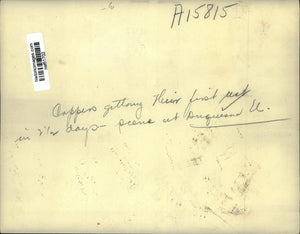 -6
A15815
Coppers getting their first rest
in 2 1/2 days - scene at Duquesne U.